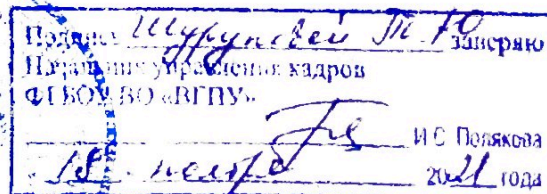 Подпись Шуруповой Т.Ю. заверяю
Начальник управления кадров
ФГБОУ ВО «ВГПУ»
И.С. Полякова
18 2021 года